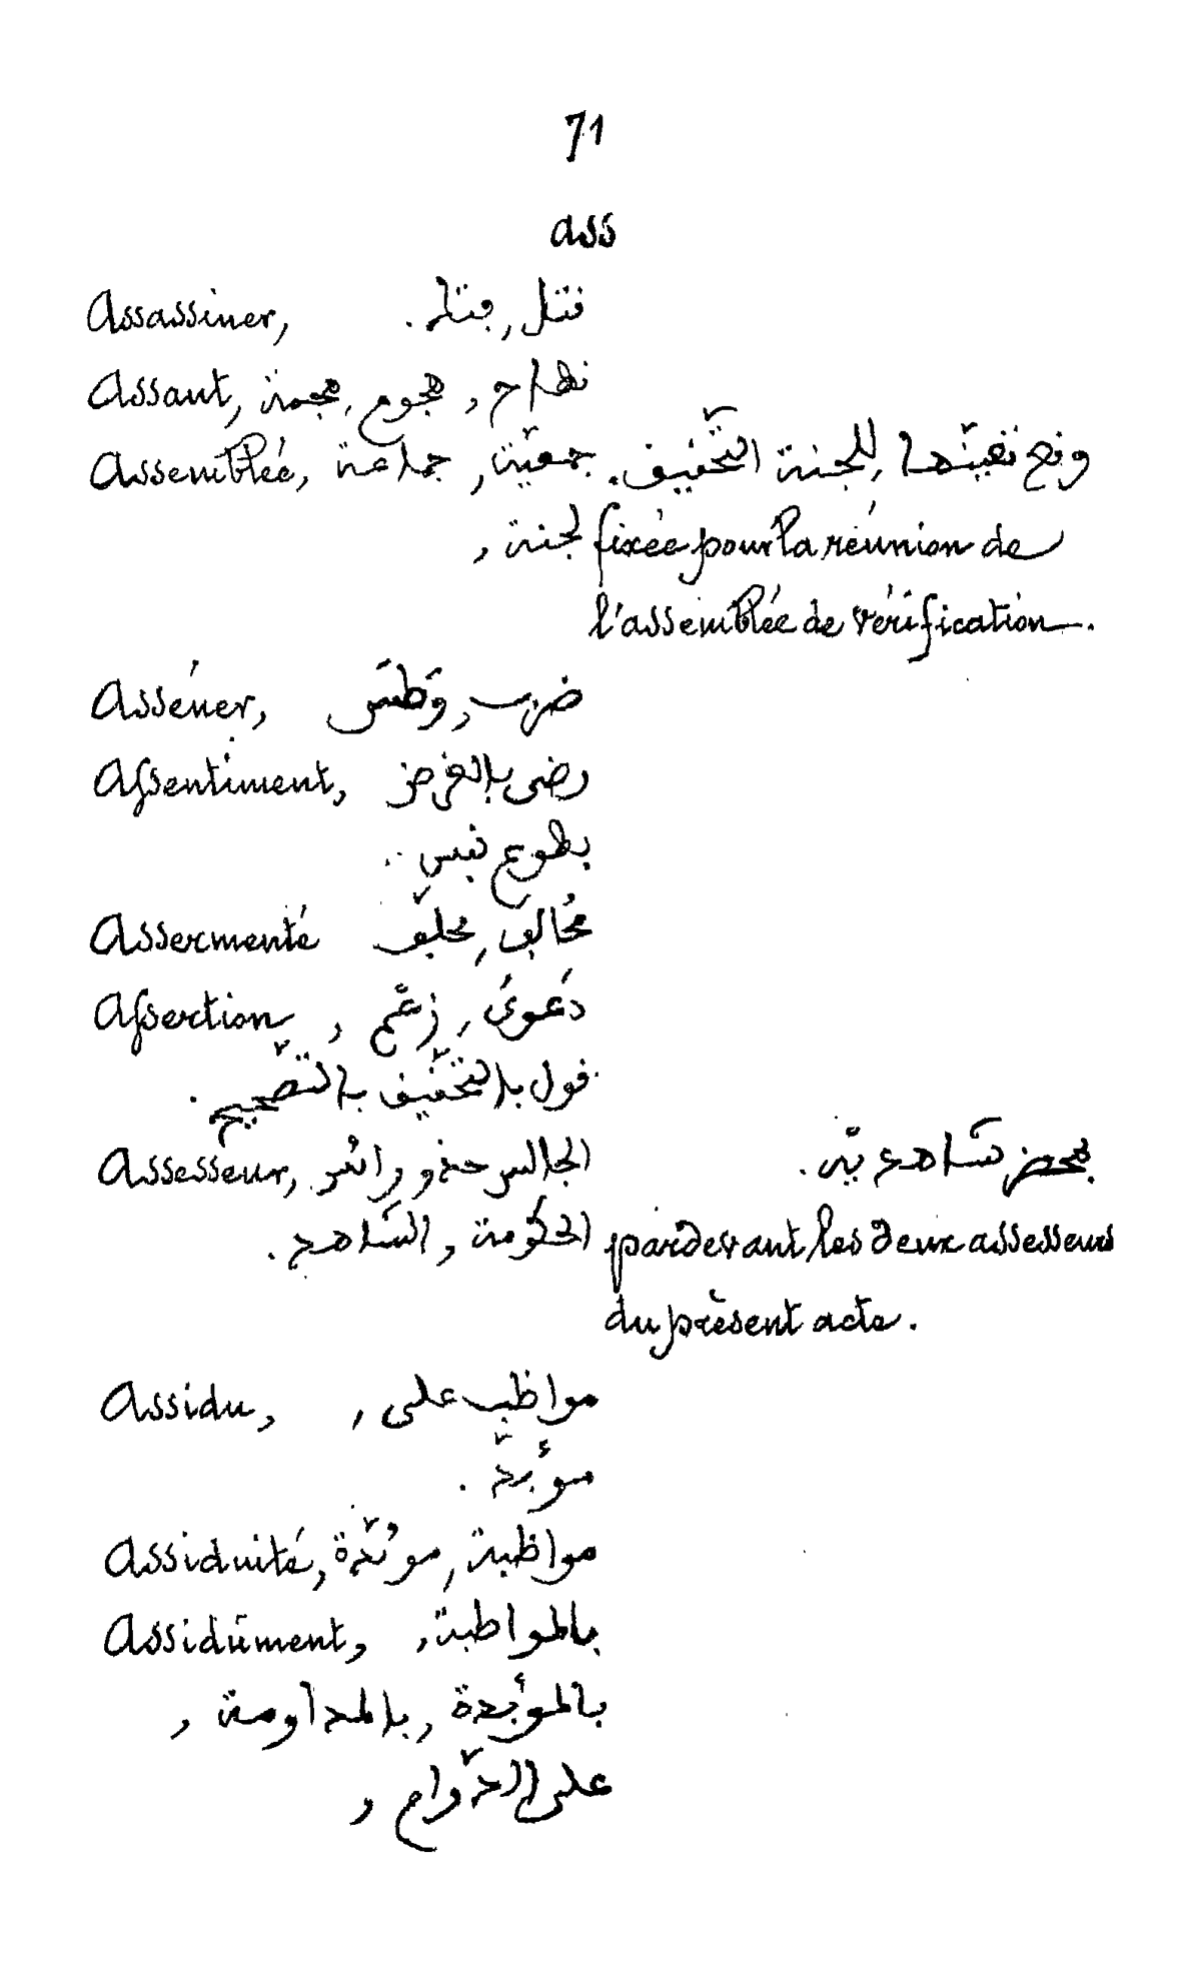 71
ass
Assassiner, قتل, فتله.
Assaut, هجوم, هجمة
Assemblée, جماعة, جمعيّة. التّحقيق للجنة
لجنة, fixée pour la réunion de
l'assemblée de vérification.
Asséner, ضرب,
Assentiment, رضى بالغرض
بطوع نفس
Assermenté محالف, محلّف
Assertion, دَعوىَ, زعْم,
قول بالتّحقيق بالتّصحيح.
Assesseur, الجالس حذو رائس بمحضر شاهديه.
الحكومة, الشاهد. pardevant les deux assesseurs
du présent acte.
Assidu, مواظب على,
مؤبدّ.
Assiduité, مواظبة,
Assidûment, بالمواظبة,
بالمؤبدة, بالمداومة,
على الدّوام,